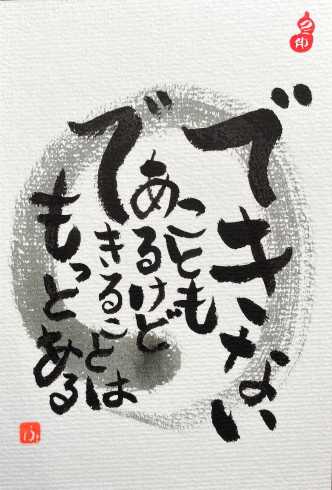 できない
ことも
あるけど
できることは
もっとある
ふ